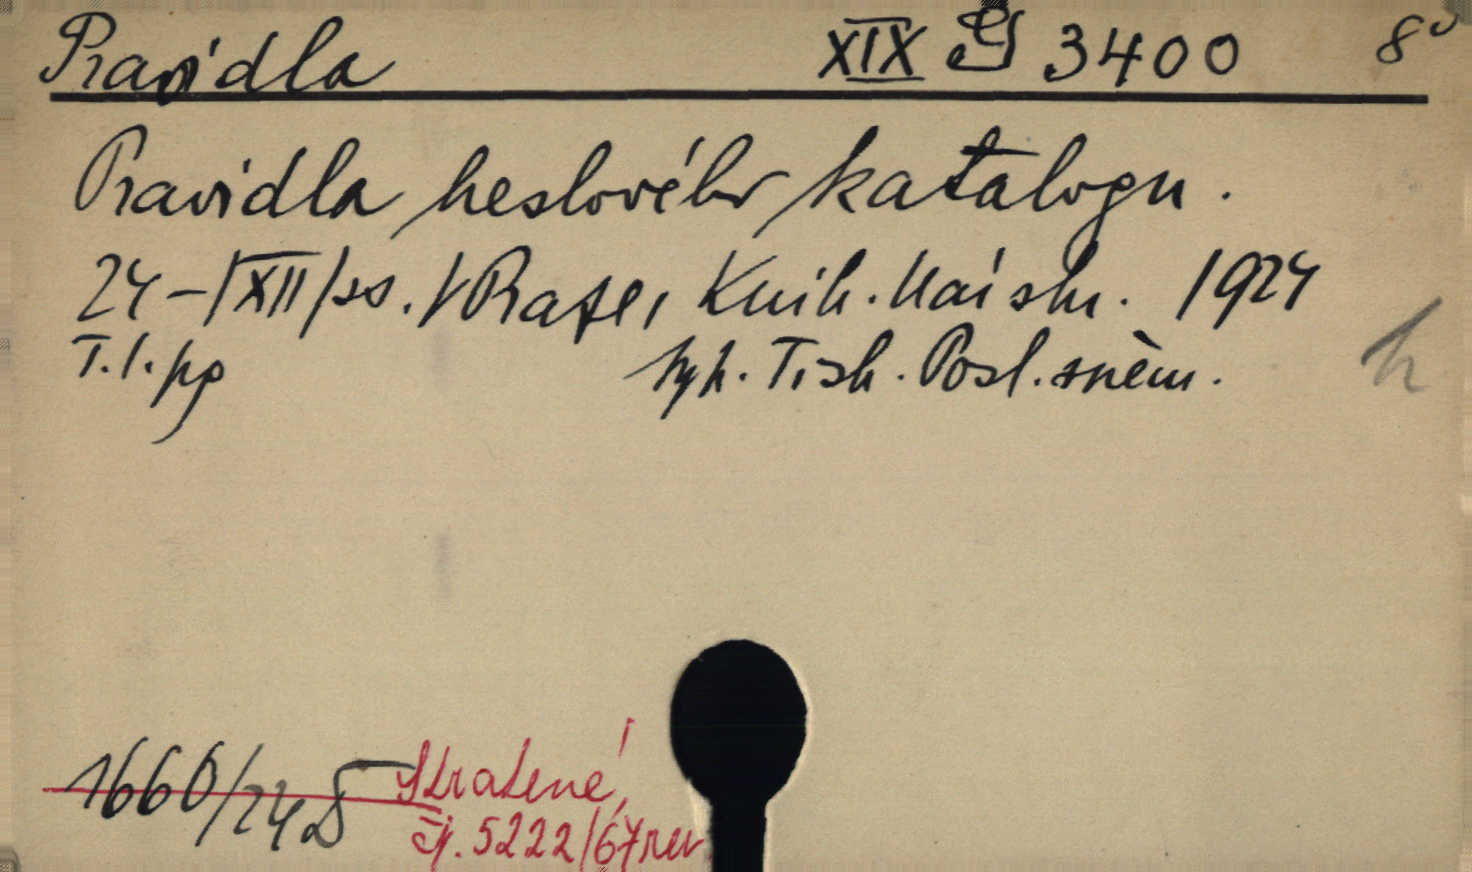 Pravidla XIX G 3400 8°
Pravidla heslového katalogu.
24-/XII/ss. V Praze, Knih. Nár. shr. 1924
T.l.pp Typ. Tisk. Posl. sněm.
h
1660/24
Ztracené,
čj. 5222/67 rev